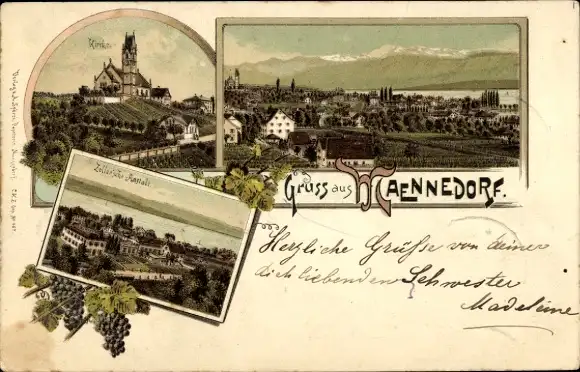 Kirche
Zeller'sche Anstalt
Gruss aus Maennedorf.
Herzliche Grüße von deiner
dich liebenden Schwester
Madeleine